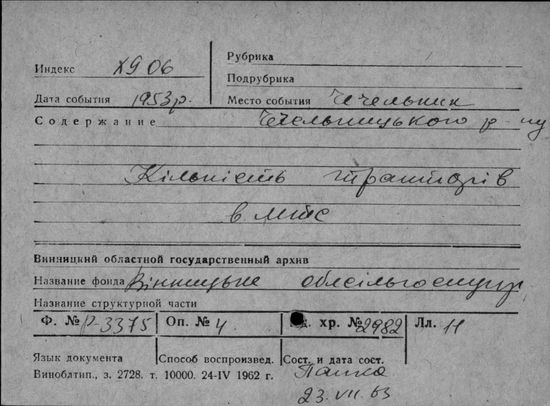 Индекс Х9 06
Рубрика
Подрубрика
Дата события 1953р.
Место события Чечельник
Содержание Чечельницького р-ну
Кількість тракторів
в МТС
Винницкий областной государственный архив
Название фонда Вінницьке облсільгоспупр
Название структурной части
Ф. № Р-3375 Оп. № 4 Ед. хр. № 2982 Лл. 11
Язык документа Способ воспроизвед. Сост. и дата сост.
Виноблтип., з. 2728. т. 10000. 24-IV 1962 г.
23.VII.63